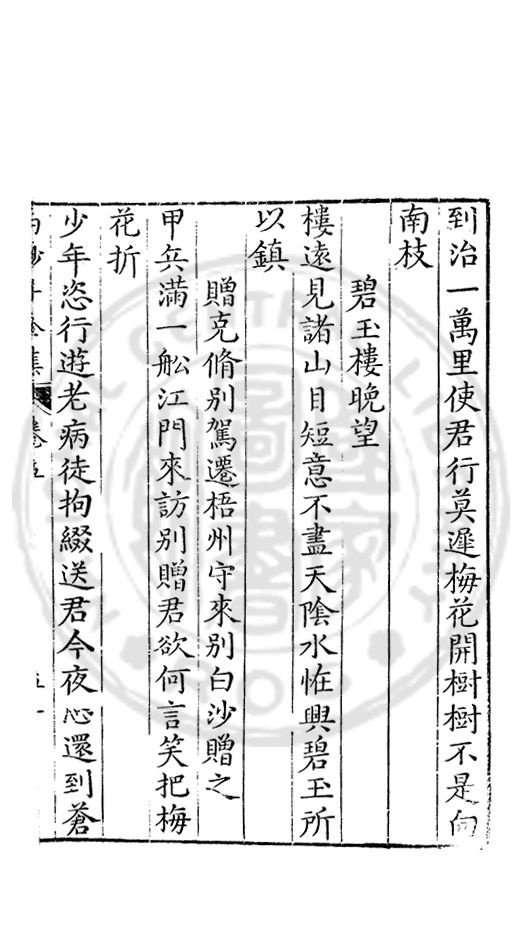 到治一萬里使君行莫遲梅花開樹樹不是向
南枝
碧玉樓晚望
樓遠見諸山目短意不盡天陰水恠興碧玉所
以鎮
贈克脩別駕遷梧州守來別白沙贈之
甲兵滿一舩江門來訪別贈君欲何言笑把梅
花折
少年恣行遊老病徒拘綴送君今夜心還到蒼